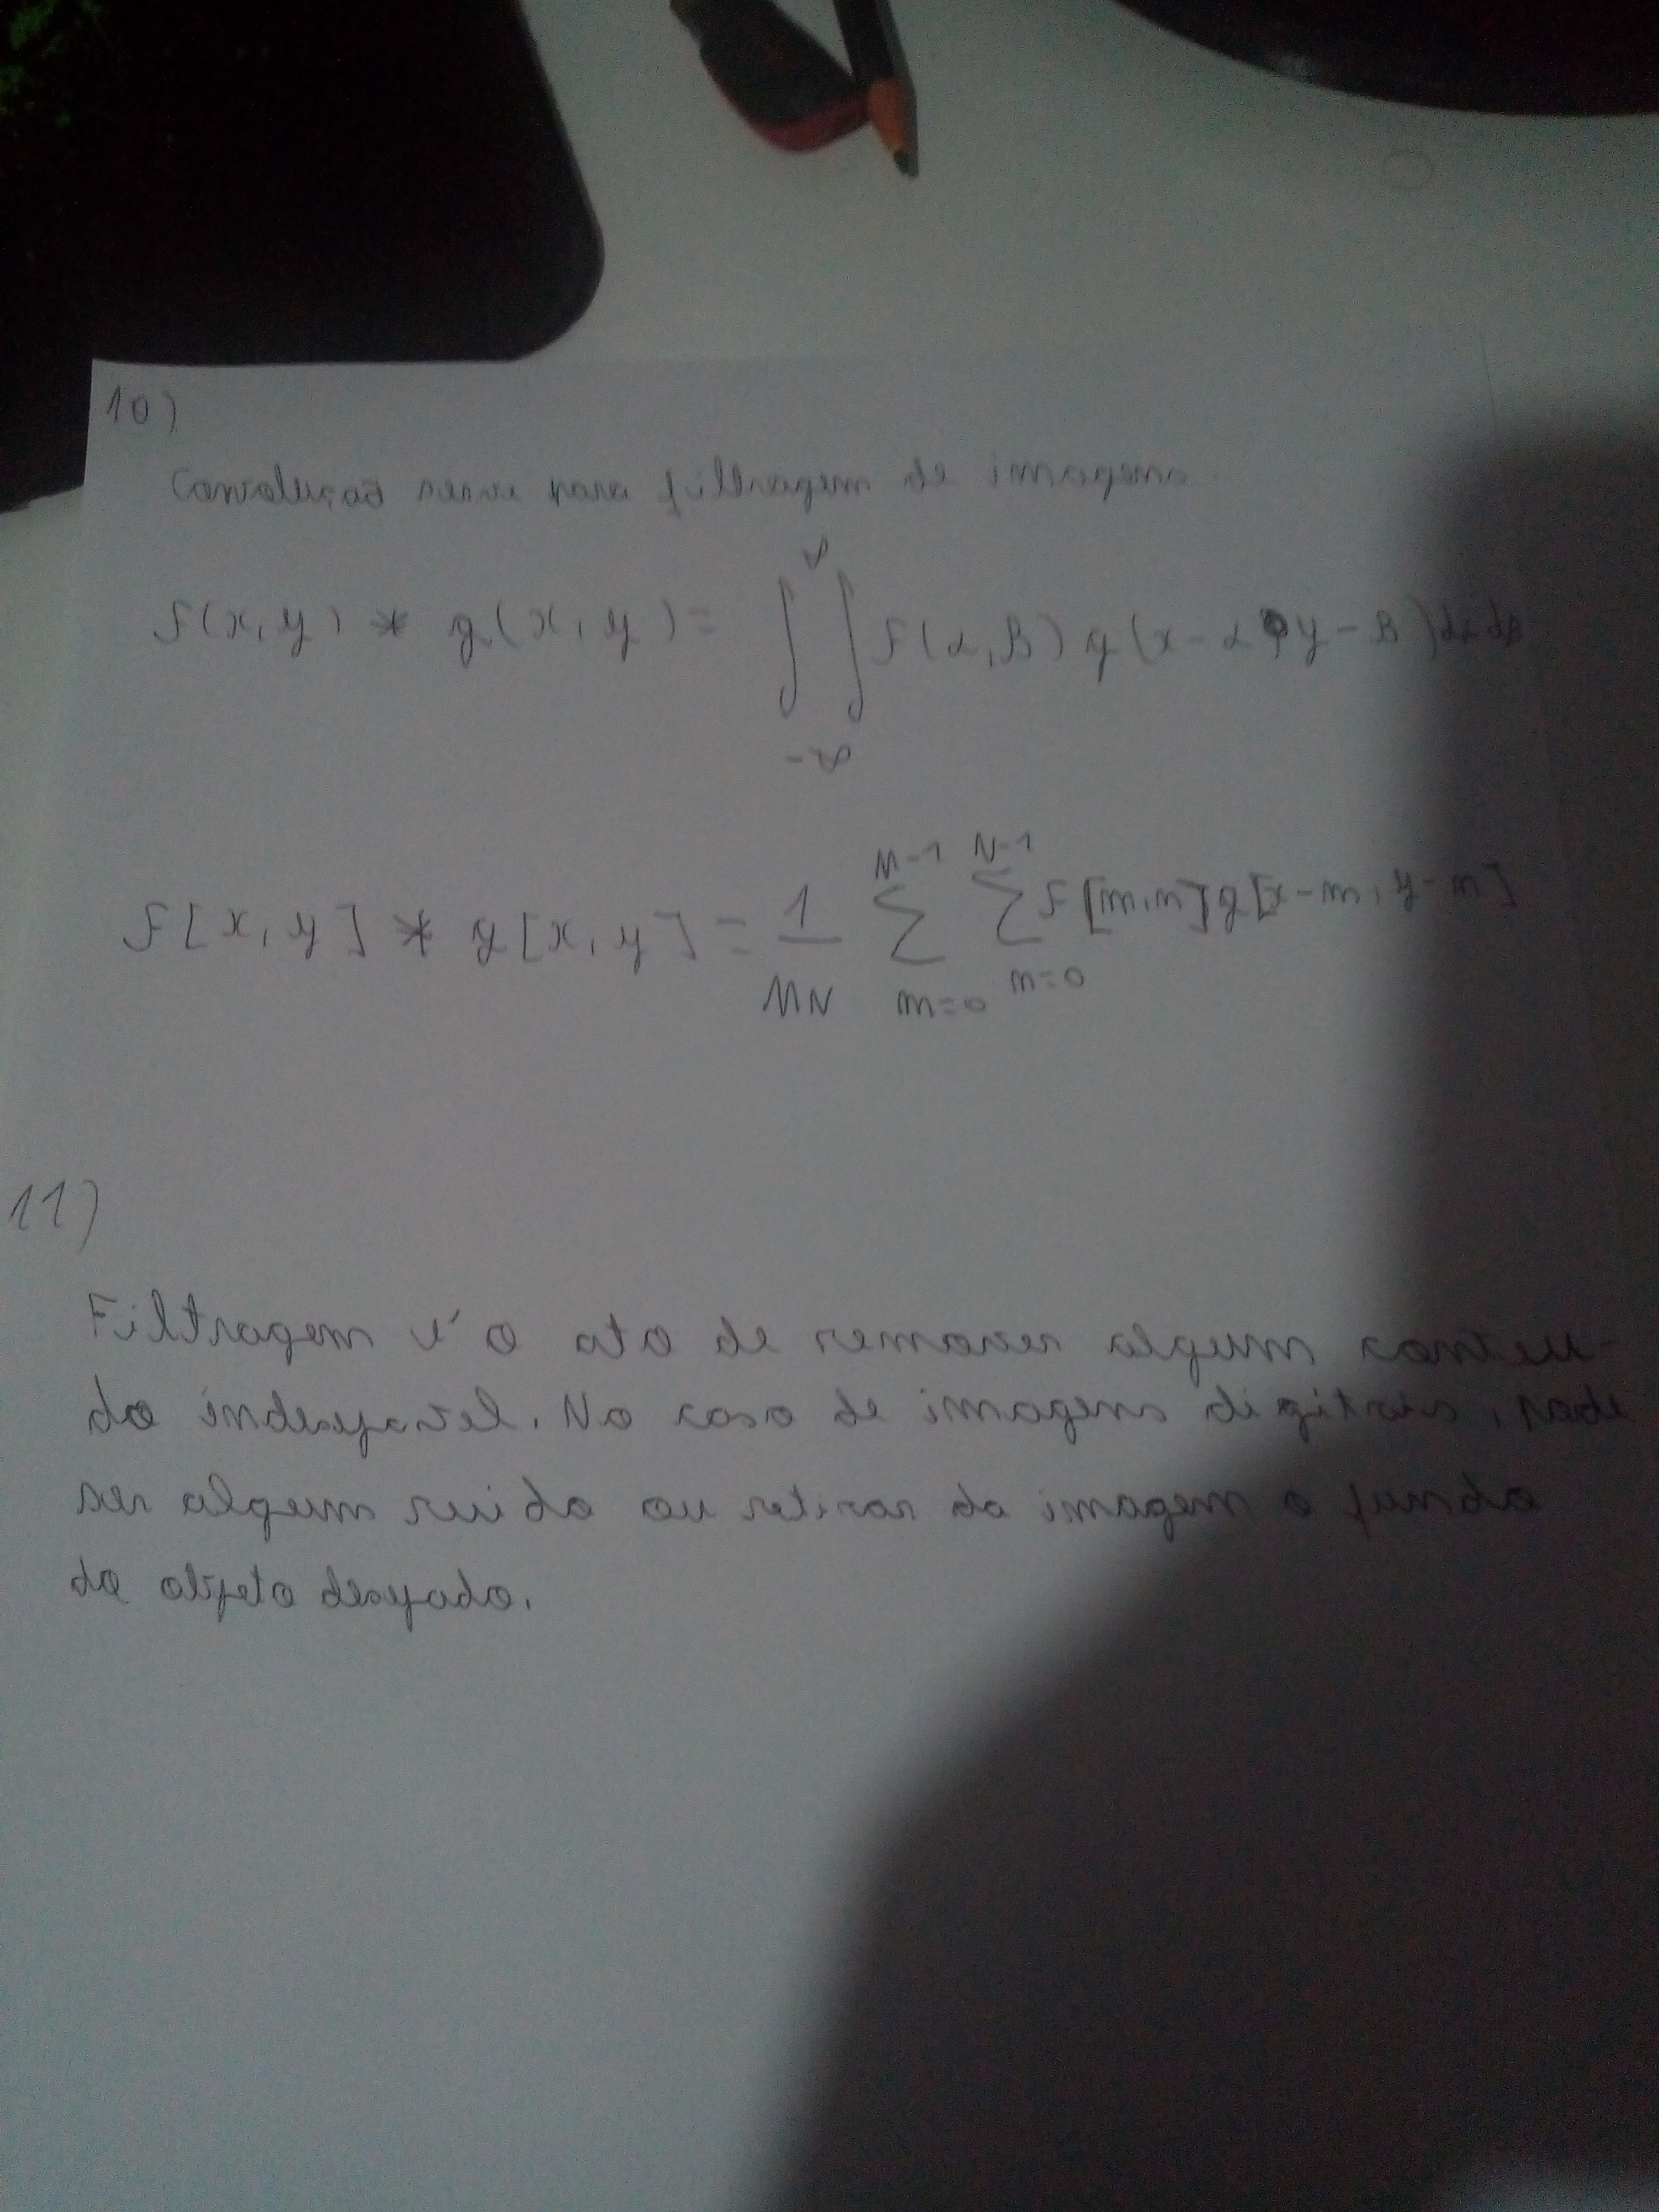 10)
Convolução serve para filtragem de imagens.
f(x,y) * g(x,y) = ∫∫ f(α,β) g(x-α, y-β) dα dβ
∞
-∞
f[x,y] * g[x,y] = 1/MN Σ Σ f[m,n] g[x-m, y-n]
M-1 N-1
m=0 n=0
11)
Filtragem é o ato de remover algum conteú-
do indesejável. No caso de imagens digitais, pode
ser algum ruído ou retirar da imagem o fundo
do objeto desejado.